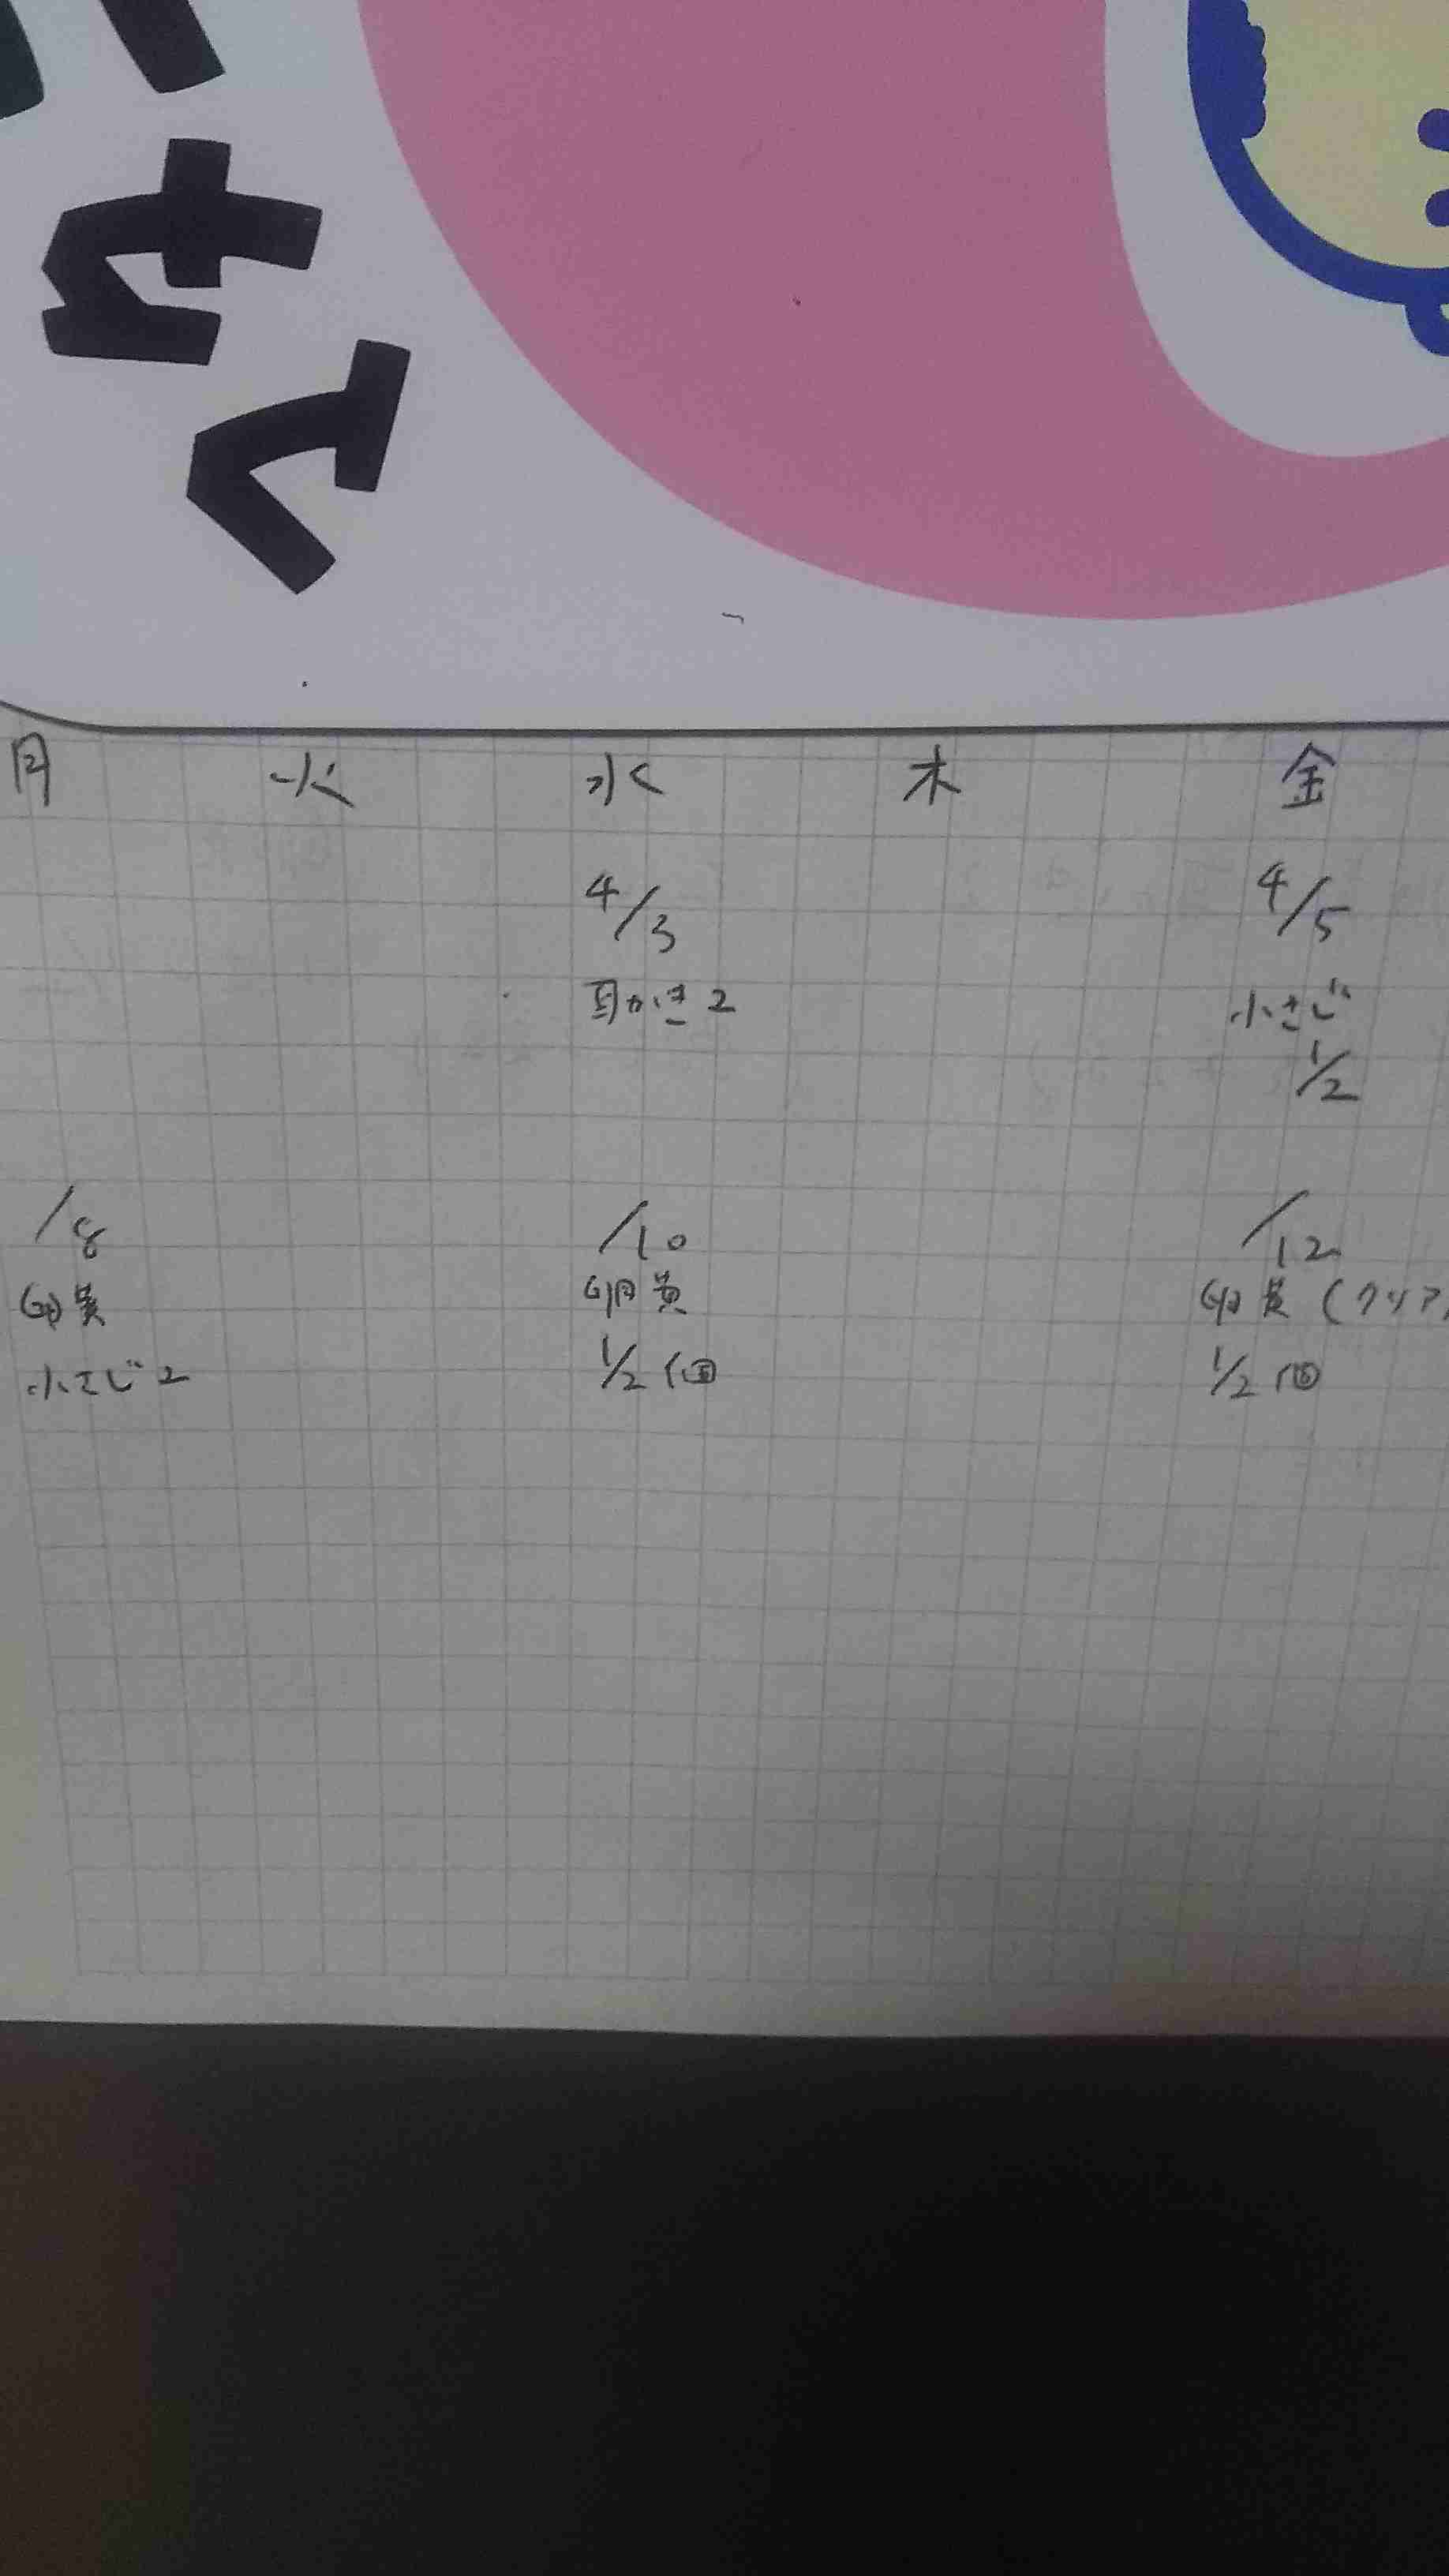 月 火 水 木 金
4/3 4/5
耳かき2 小さじ
1/2
/8 /10 /12
卵黄 卵黄 卵黄(クリア
小さじ2 1/2個 1/2個